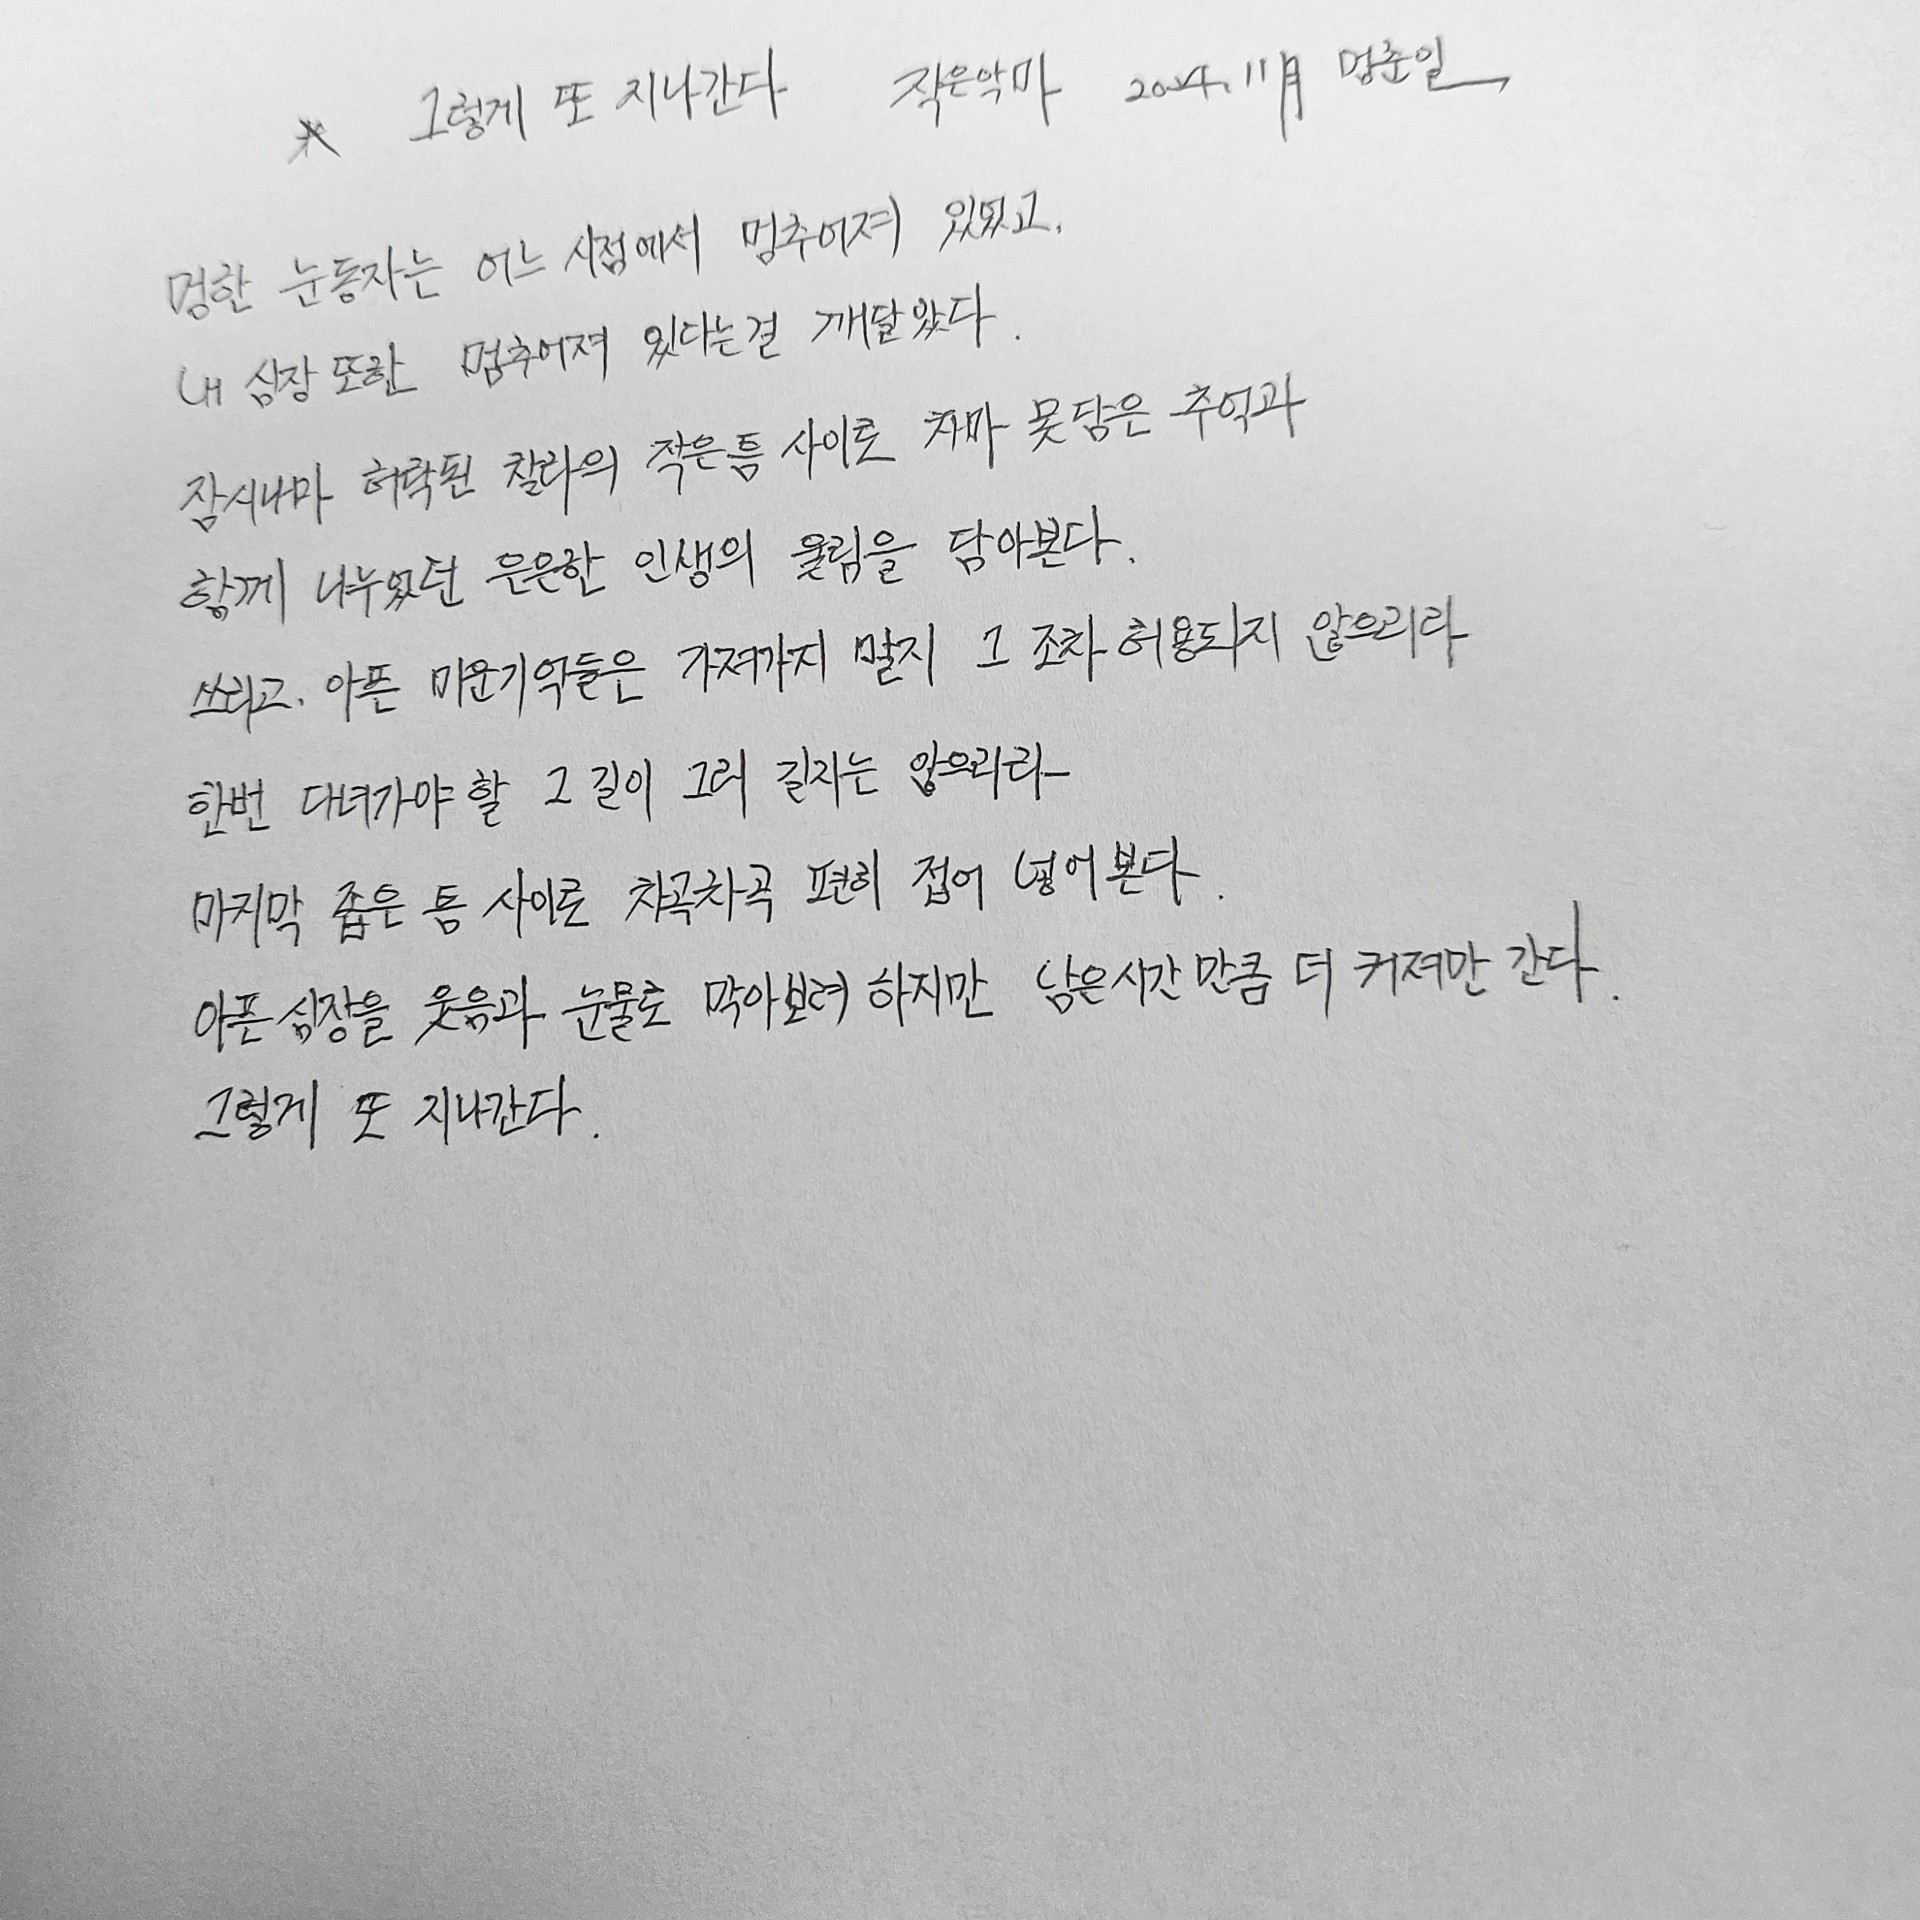 * 그렇게 또 지나간다 작은악마 2024. 11月 멈춘일
멍한 눈동자는 어느 시점에서 멈추어져 있었고.
내 심장 또한 멈추어져 있다는걸 깨달았다.
잠시나마 허락된 찰라의 작은틈 사이로 차마 못담은 추억과
함께 나누었던 은은한 인생의 울림을 담아본다.
쓰리고. 아픈 미운기억들은 가져가지 말지 그 조차 허용되지 않으리라
한번 다녀가야 할 그 길이 그리 길지는 않으리라
마지막 좁은 틈 사이로 차곡차곡 편히 접어 넣어본다.
아픈심장을 웃음과 눈물로 막아보려 하지만 남은시간만큼 더 커져만 간다.
그렇게 또 지나간다.